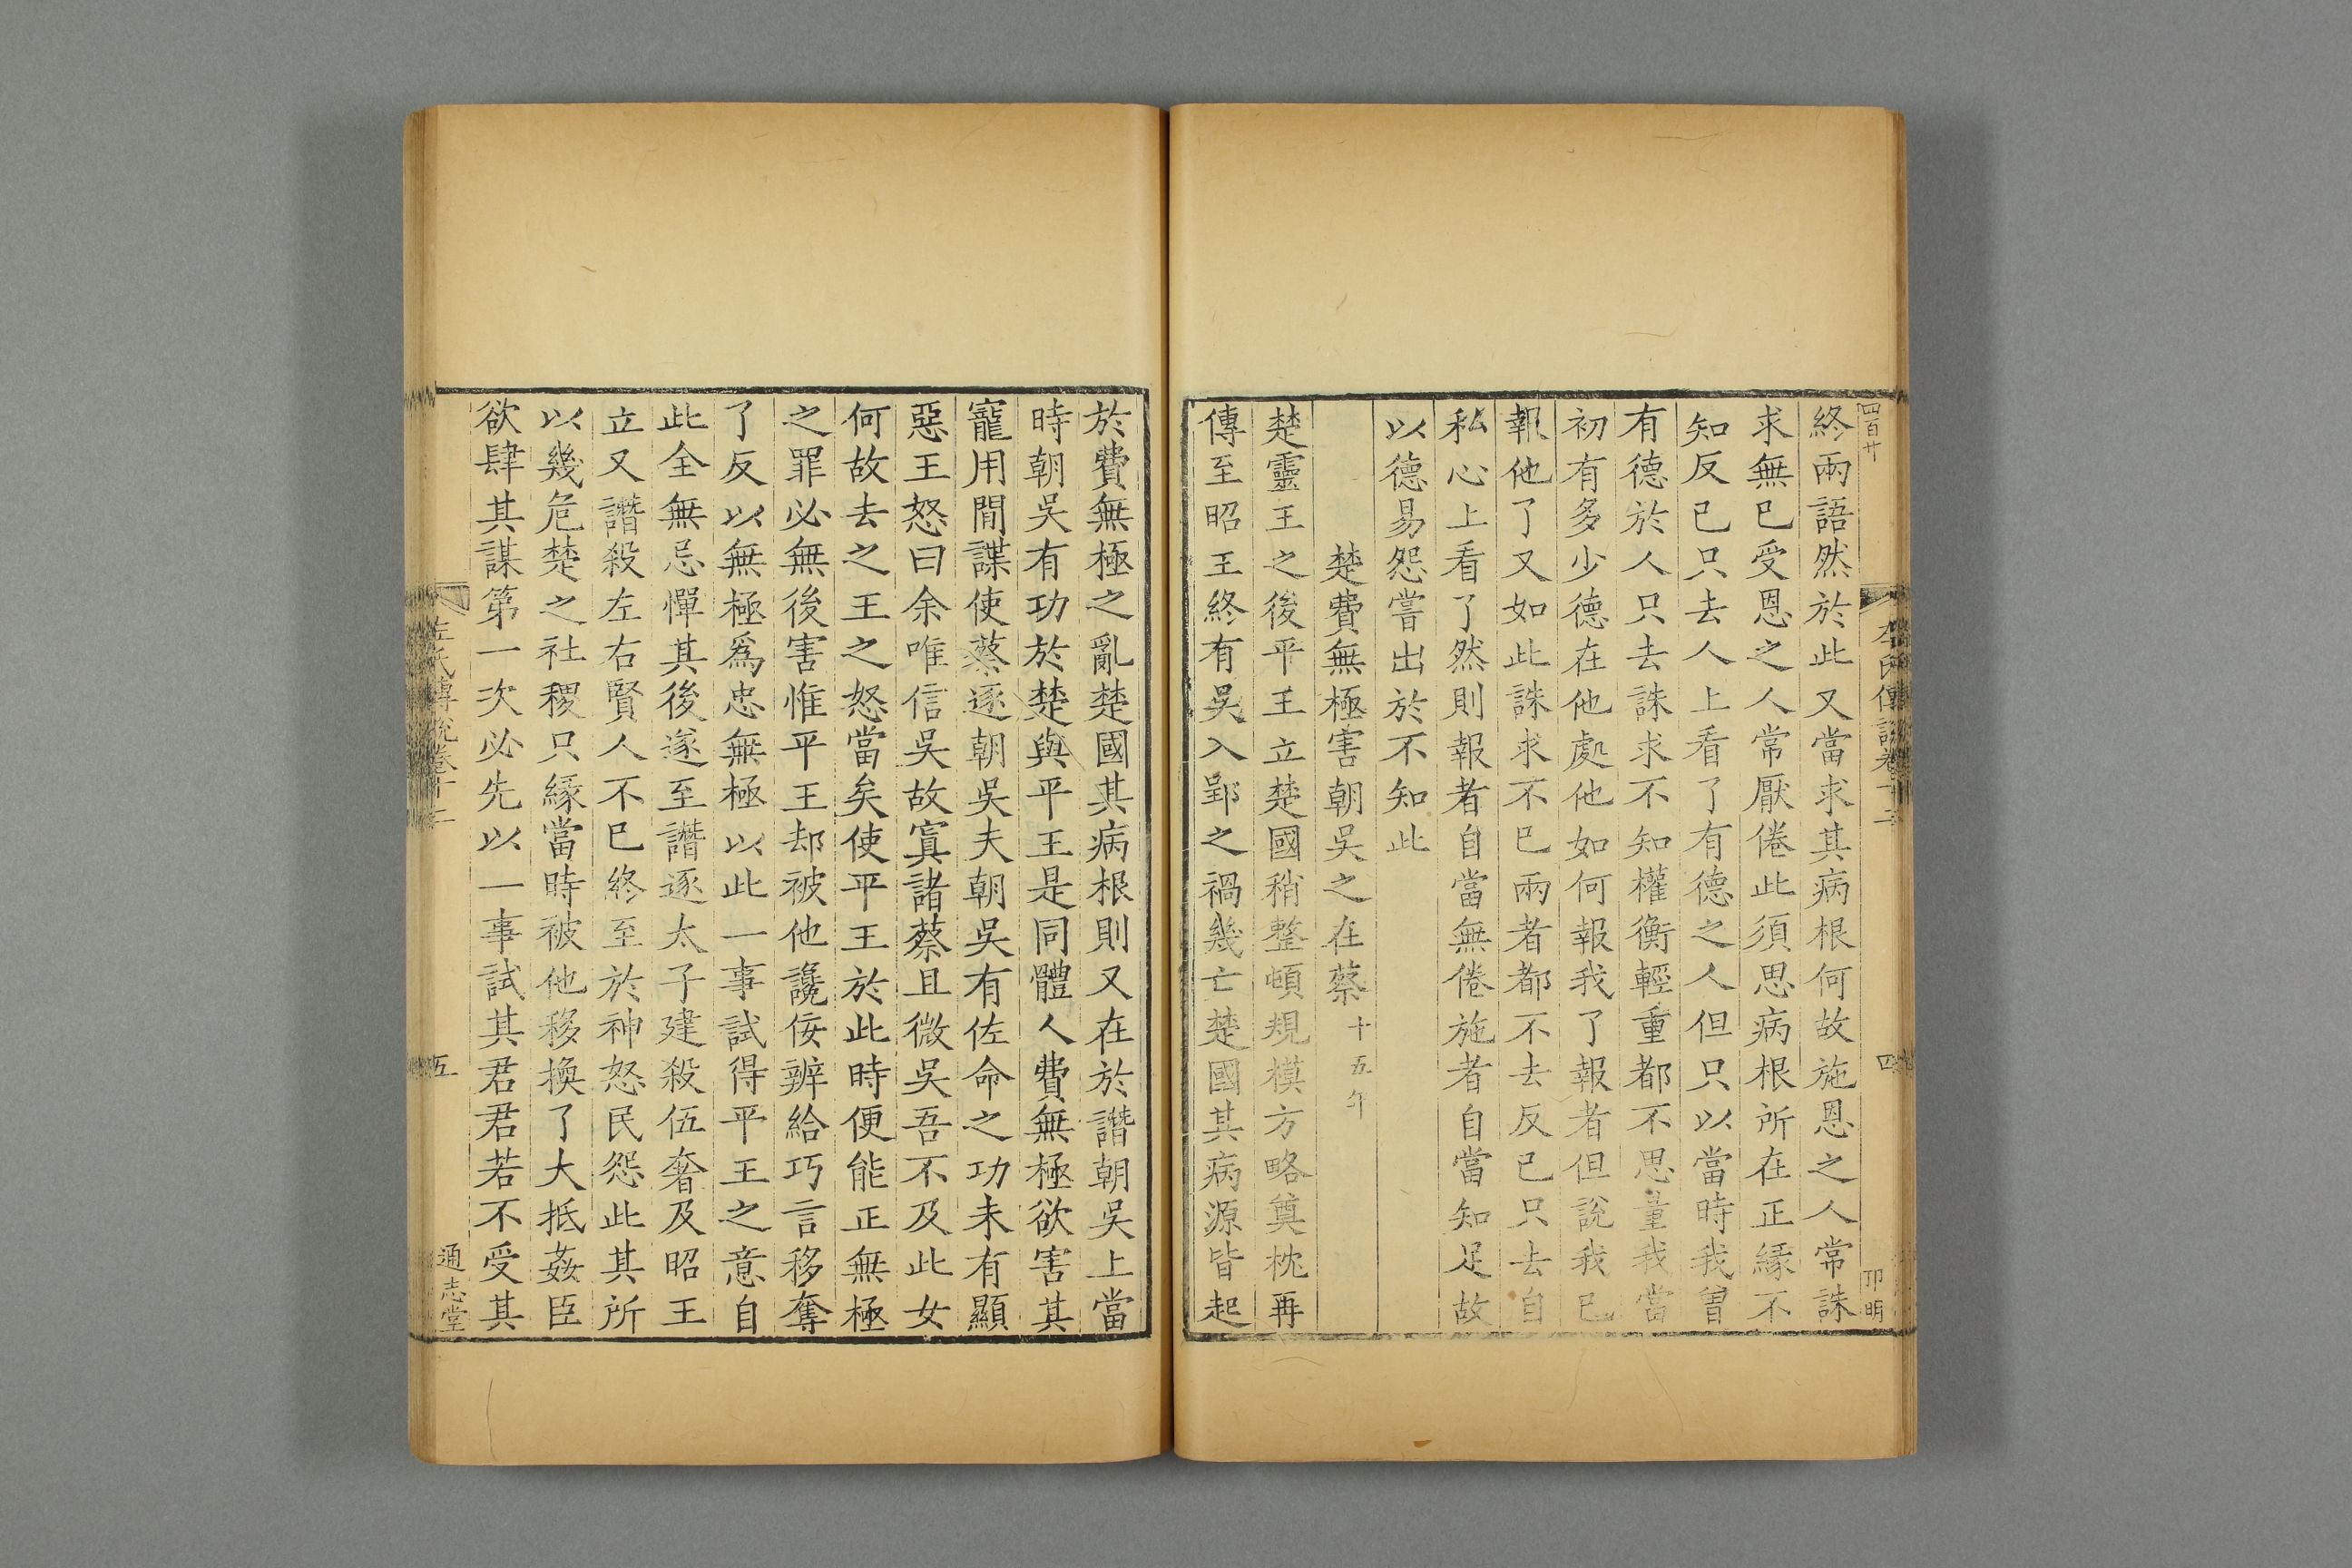 四百廿
左氏傳說卷十二
四
卬明
終兩語然於此又當求其病根何故施恩之人常誅
求無已受恩之人常厭倦此須思病根所在正緣不
知反已只去人上看了有德之人但只以當時我曾
有德於人只去誅求不知權衡輕重都不思量我當
初有多少德在他處他如何報我了報者但說我已
報他了又如此誅求不已兩者都不去反已只去自
私心上看了然則報者自當無倦施者自當知足故
以德易怨嘗出於不知此
楚費無極害朝吳之在蔡十五年
楚靈王之後平王立楚國稍整頓規模方略奠枕再
傳至昭王終有吳入郢之禍幾亡楚國其病源皆起
於費無極之亂楚國其病根則又在於譖朝吳上當
時朝吳有功於楚與平王是同體人費無極欲害其
寵用間諜使蔡逐朝吳夫朝吳有佐命之功未有顯
惡王怒曰余唯信吳故寘諸蔡且微吳吾不及此女
何故去之王之怒當矣使平王於此時便能正無極
之罪必無後害惟平王却被他讒佞辨給巧言移奪
了反以無極爲忠無極以此一事試得平王之意自
此全無忌憚其後遂至譖逐太子建殺伍奢及昭王
立又譖殺左右賢人不已終至於神怒民怨此其所
以幾危楚之社稷只緣當時被他移換了大抵姦臣
欲肆其謀第一次必先以一事試其君君若不受其
左氏傳說卷十二
五
通志堂